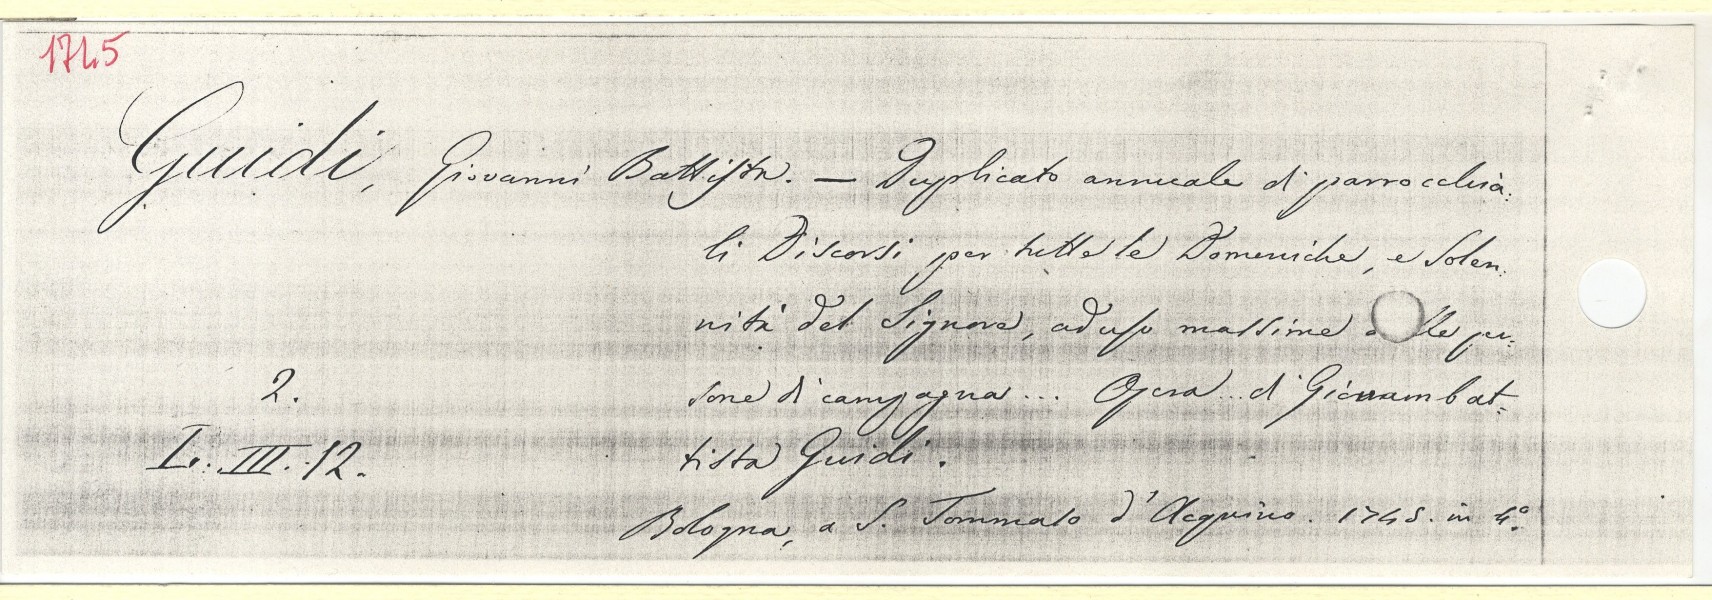 1745
Guidi, Giovanni Battista. — Duplicato annuale di parrocchia:
li Discorsi per tutte le Domeniche, e Solen:
nità del Signore, ad uso massime alle per:
2. sone di campagna... Opera.. di Giovambat:
I.. III. 12. tista Guidi.
Bologna, a S. Tommaso d'Acquino. 1745. in 4.º